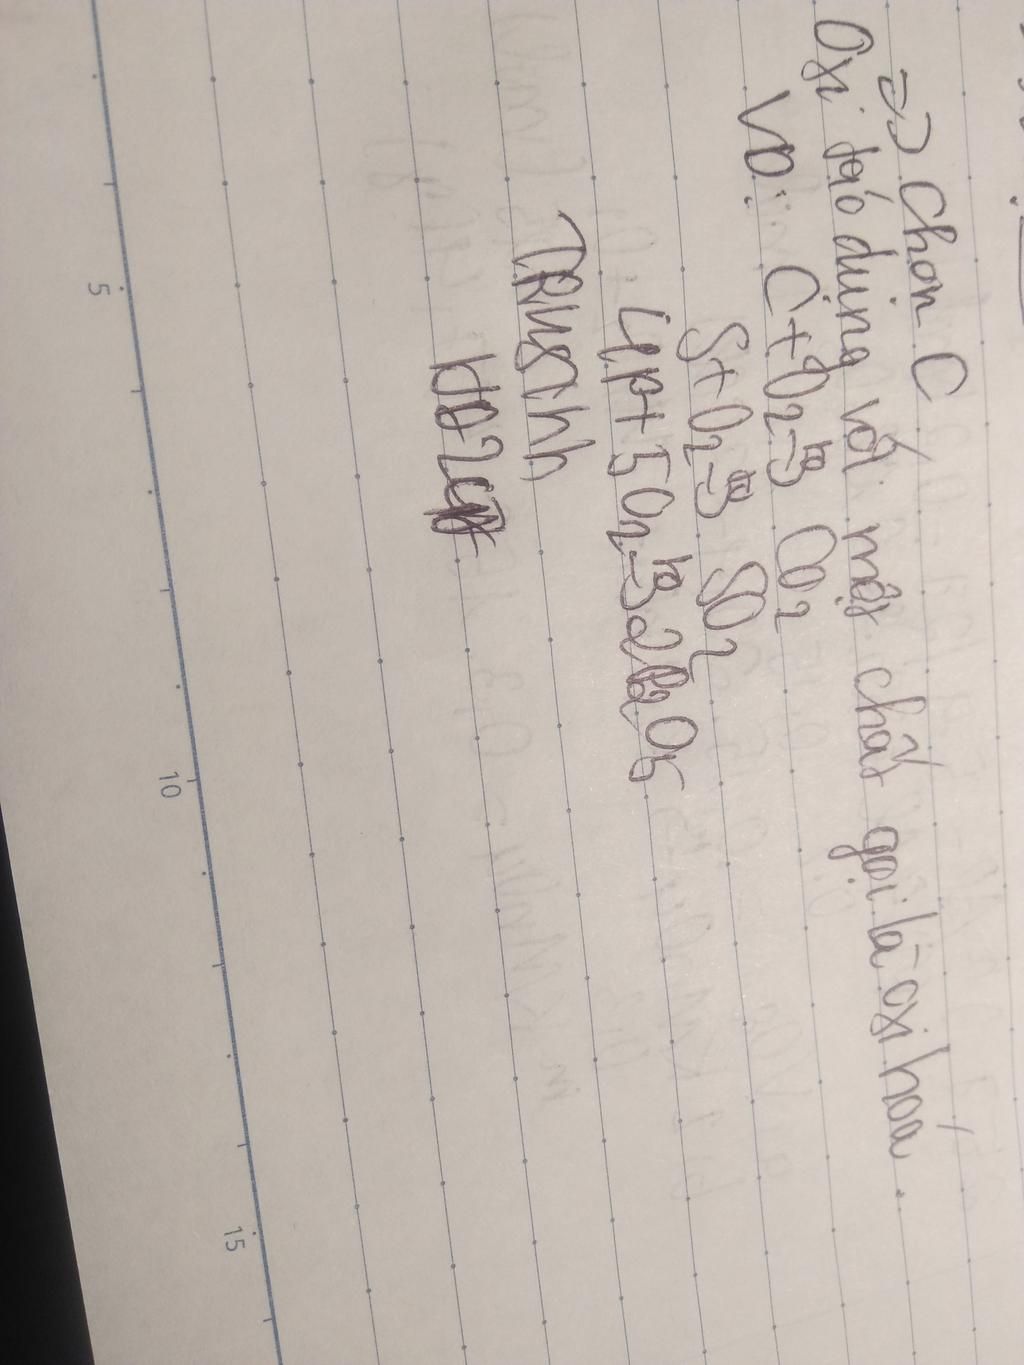 => Chọn C
Oxi tác dụng với một chất gọi là oxi hóa.
VD: C + O2 -to-> CO2
S + O2 -to-> SO2
4P + 5O2 -to-> 2P2O5
5
10
15